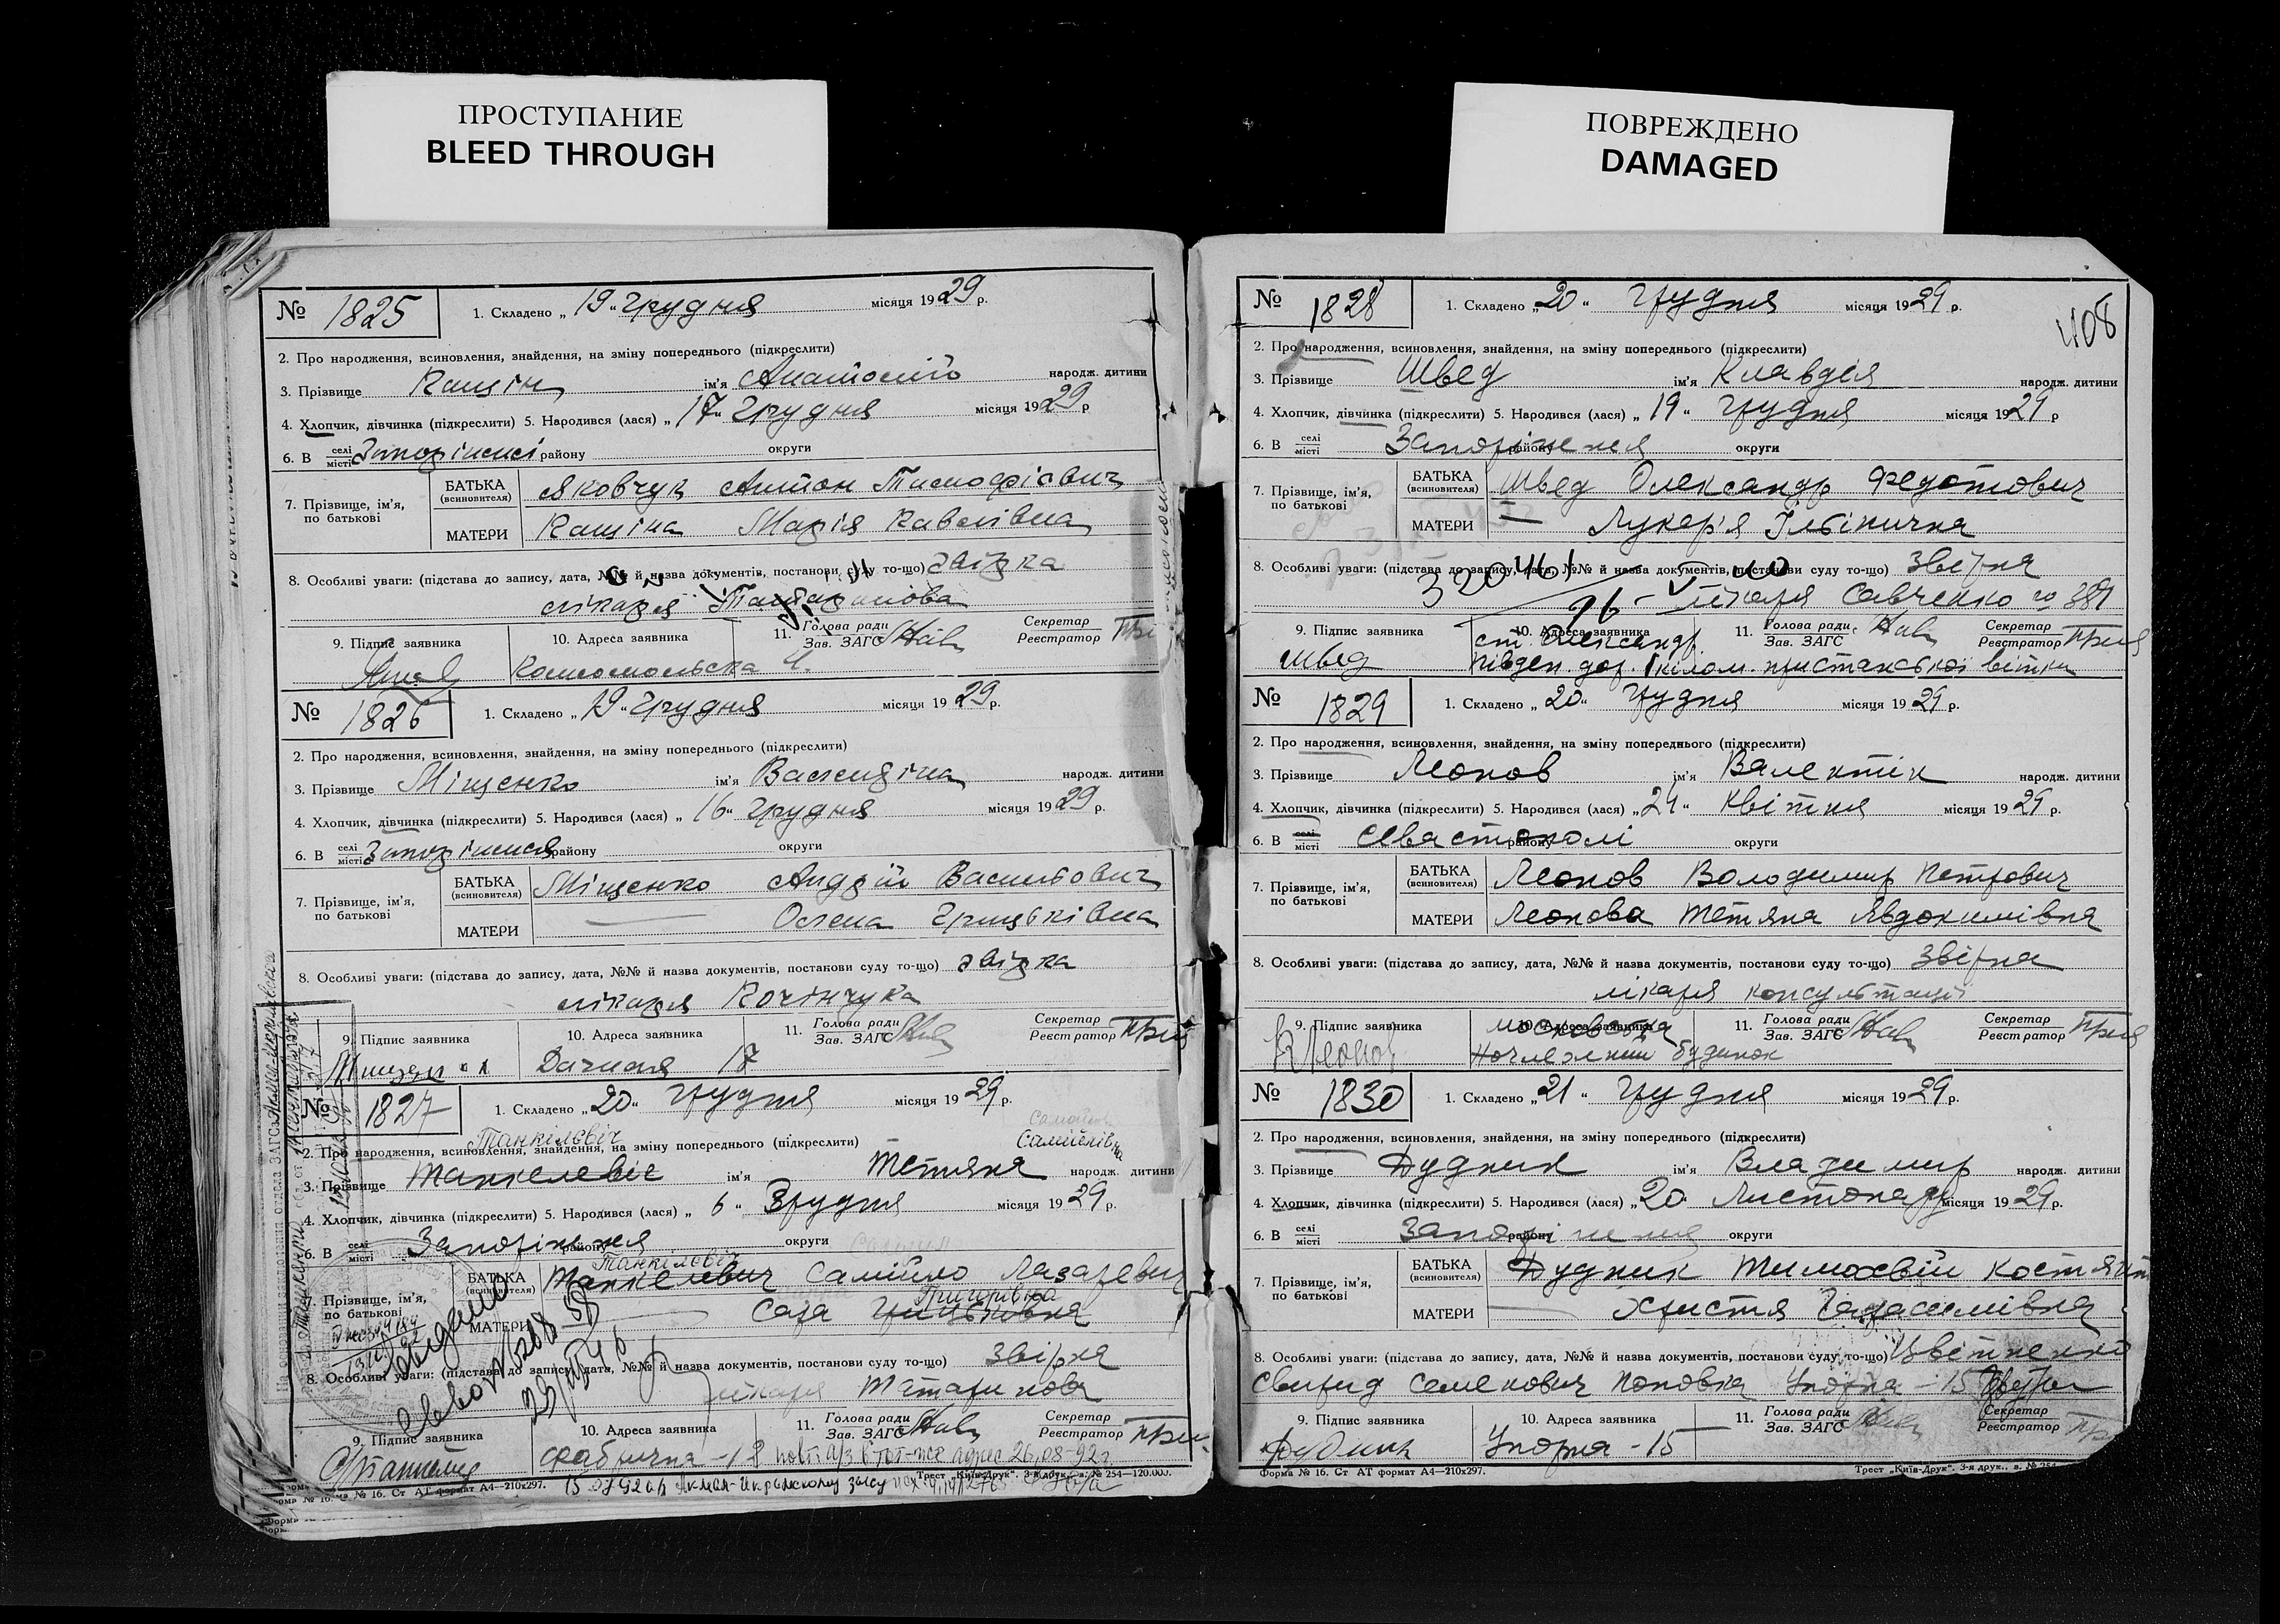 ПРОСТУПАНИЕ
BLEED THROUGH
ПОВРЕЖДЕНО
DAMAGED
№ 1825 1. Складено „19“ Грудня місяця 1929 р.
2. Про народження, всиновлення, знайдення, на зміну попереднього (підкреслити)
3. Прізвище Кащін ім'я Анатолій народж. дитини
4. Хлопчик, дівчинка (підкреслити) 5. Народився (лася) „17“ Грудня місяця 1929 р
6. В селі місті Запоріжжі району округи
7. Прізвище, ім'я, по батькові БАТЬКА (всиновителя) Яковчук Антон Тимофієвич
МАТЕРИ Кащіна Марія Павлівна
8. Особливі уваги: (підстава до запису, дата, №№ й назва документів, постанови суду то-що) звірка
лікаря
9. Підпис заявника 10. Адреса заявника 11. Голова ради Зав. ЗАГС Секретар Реєстратор
Комсомольська
№ 1826 1. Складено „19“ Грудня місяця 1929 р.
2. Про народження, всиновлення, знайдення, на зміну попереднього (підкреслити)
3. Прізвище Міщенко ім'я Васелина народж. дитини
4. Хлопчик, дівчинка (підкреслити) 5. Народився (лася) „16“ Грудня місяця 1929 р.
6. В селі місті Запоріжжя району округи
7. Прізвище, ім'я, по батькові БАТЬКА (всиновителя) Міщенко Андрій Васильович
МАТЕРИ — Олена Грицьківна
8. Особливі уваги: (підстава до запису, дата, №№ й назва документів, постанови суду то-що) звірка
лікаря Кочінчука
9. Підпис заявника 10. Адреса заявника 11. Голова ради Зав. ЗАГС Секретар Реєстратор
Дачная 17
№ 1827 1. Складено „20“ Грудня місяця 1929 р.
Танкілєвіч Самійлівна
2. Про народження, всиновлення, знайдення, на зміну попереднього (підкреслити)
3. Прізвище Танкелевіч ім'я Тетяна народж. дитини
4. Хлопчик, дівчинка (підкреслити) 5. Народився (лася) „6“ Грудня місяця 1929 р.
6. В селі місті Запоріжжя району округи
Танкілєвіч
7. Прізвище, ім'я, по батькові БАТЬКА (всиновителя) Танкелевич Самійло Лазаревич
Григорівна
МАТЕРИ Сара Грицьківна
8. Особливі уваги: (підстава до запису, дата, №№ й назва документів, постанови суду то-що) звірка
лікаря Татаринова
9. Підпис заявника 10. Адреса заявника 11. Голова ради Зав. ЗАГС Секретар Реєстратор
Фабрична - 12 повт. а/з в тот-же адрес 26.08-92г.
Форма № 16. Ст АТ формат А4—210х297. Трест „Київ-Друк“. 3-я друк., з. № 254—120.000.
408
№ 1828 1. Складено „20“ Грудня місяця 1929 р.
2. Про народження, всиновлення, знайдення, на зміну попереднього (підкреслити)
3. Прізвище Швед ім'я Клавдія народж. дитини
4. Хлопчик, дівчинка (підкреслити) 5. Народився (лася) „19“ Грудня місяця 1929 р
6. В селі місті Запоріжжя району округи
7. Прізвище, ім'я, по батькові БАТЬКА (всиновителя) Швед Олександр Федотович
МАТЕРИ — Лукер'я Ільінична
8. Особливі уваги: (підстава до запису, дата, №№ й назва документів, постанови суду то-що) Звірка
лікаря Савченко
9. Підпис заявника 10. Адреса заявника 11. Голова ради Зав. ЗАГС Секретар Реєстратор
ст. Олександр.
Швед Півден. дор. 1 кілом. пристанської вітки
№ 1829 1. Складено „20“ Грудня місяця 1929 р.
2. Про народження, всиновлення, знайдення, на зміну попереднього (підкреслити)
3. Прізвище Леонов ім'я Валентін народж. дитини
4. Хлопчик, дівчинка (підкреслити) 5. Народився (лася) „24“ Квітня місяця 1929 р.
6. В селі місті Севастополі району округи
7. Прізвище, ім'я, по батькові БАТЬКА (всиновителя) Леонов Володимир Петрович
МАТЕРИ Леонова Тетяна Явдокимівна
8. Особливі уваги: (підстава до запису, дата, №№ й назва документів, постанови суду то-що) Звірка
лікаря консультації
9. Підпис заявника 10. Адреса заявника 11. Голова ради Зав. ЗАГС Секретар Реєстратор
Московська
Леонов Ночлежний будинок
№ 1830 1. Складено „21“ Грудня місяця 1929 р.
2. Про народження, всиновлення, знайдення, на зміну попереднього (підкреслити)
3. Прізвище Дудник ім'я Владимир народж. дитини
4. Хлопчик, дівчинка (підкреслити) 5. Народився (лася) „20 Листопаду місяця 1929 р.
6. В селі місті Запоріжжя району округи
7. Прізвище, ім'я, по батькові БАТЬКА (всиновителя) Дудник Тимохвій Костянт
МАТЕРИ — Христя Герасимівна
8. Особливі уваги: (підстава до запису, дата, №№ й назва документів, постанови суду то-що) Цвітненко
Свирид Семенович
9. Підпис заявника 10. Адреса заявника 11. Голова ради Зав. ЗАГС Секретар Реєстратор
Дудник Упорна - 15
Форма № 16. Ст АТ формат А4—210х297. Трест „Київ-Друк“. 3-я друк., з. № 254